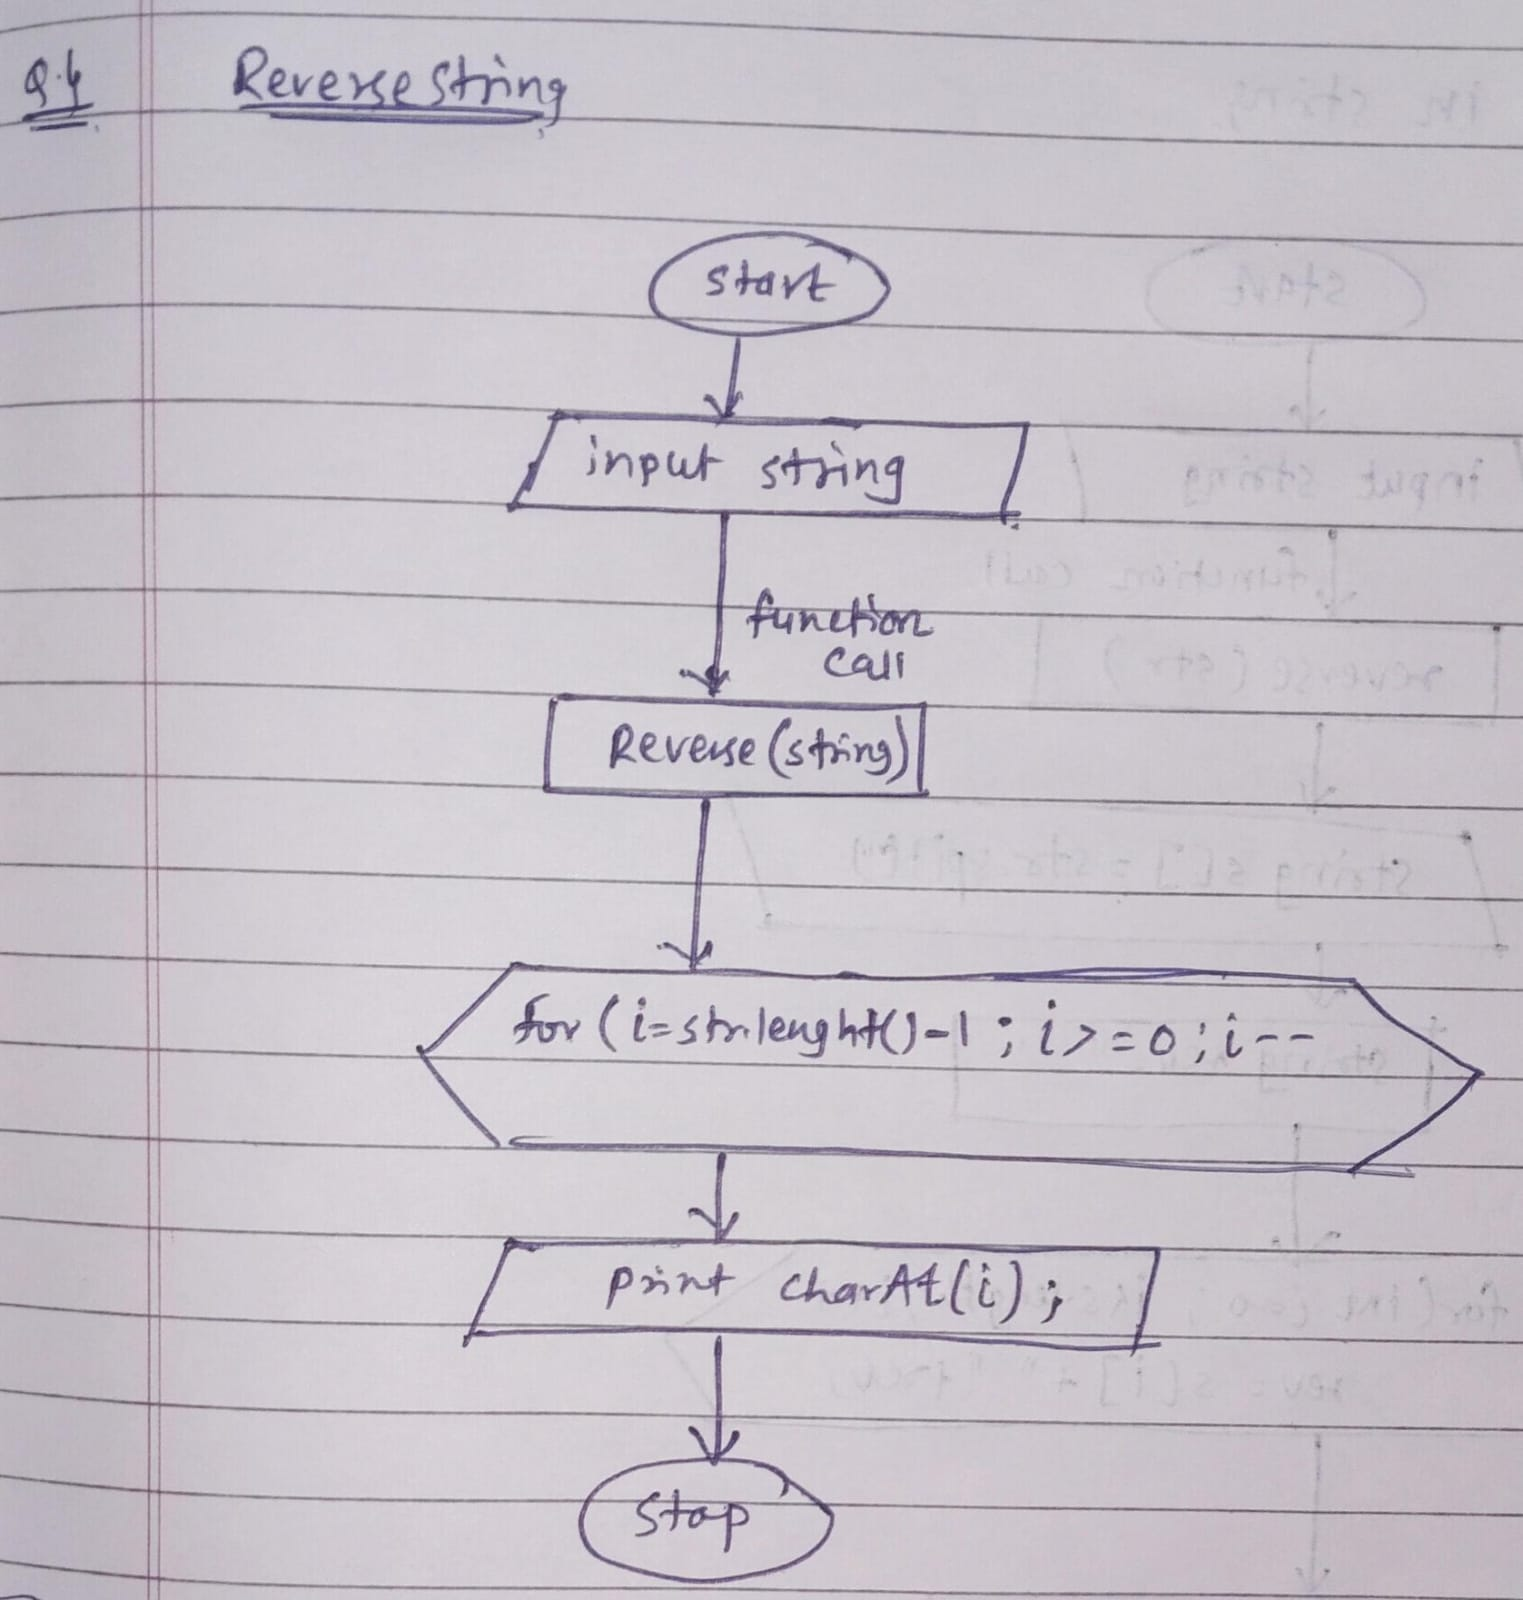 Q.4 Reverse String
start
input string
function
call
Reverse(string)
for (i=str.lenght()-1 ; i>=0 ; i--
print charAt(i) ;
Stop